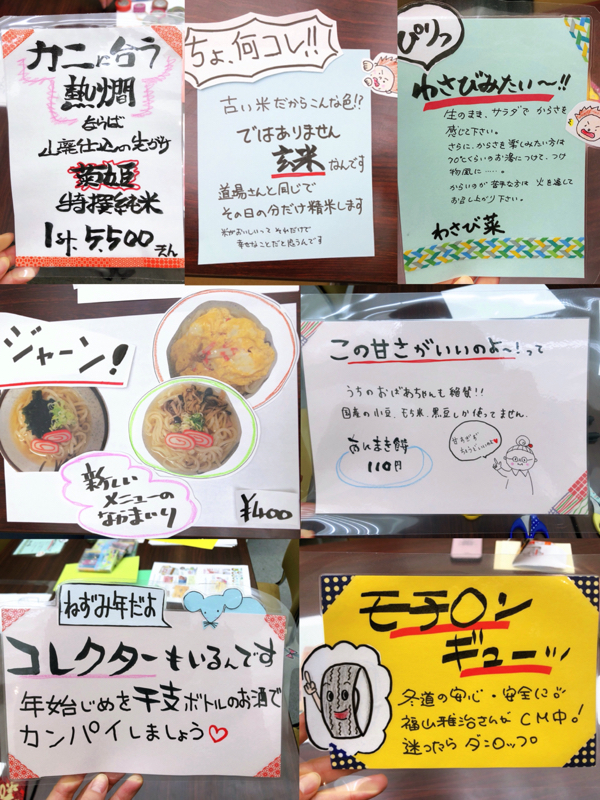 カニに合う
熱燗
ならば
山廃仕込みの生がり
菊姫
特撰純米
1st. 5,500えん
ちょ、何コレ!!
古い米だからこんな色!?
ではありません
玄米なんです
道場さんと同じで
その日の分だけ精米します
米がおいしいって それだけで
幸せなことだと思うんです
ぴりっ
わさびみたい〜!!
生のまま、サラダで からさを
感じて下さい。
さらに、からさを楽しみたい方は
70℃くらいのお湯につけて、つけ
物風に……。
からいのが苦手な方は 火を通して
お召し上がり下さい。
わさび菜
ジャーン!
新しい
メニューの
なかまいり
¥400
この甘さがいいのよ〜!って
うちのおばあちゃんも絶賛!!
国産の小豆、もち米、黒豆しか使ってません。
あんまき餅
110円
甘すぎず
ちょうどいいのよ♥
ねずみ年だよ
コレクターもいるんです
年始じめを干支ボトルのお酒で
カンパイしましょう♡
モチロン
ギューッ
冬道の安心・安全に
福山雅治さんが CM中!
迷ったら ダンロップ。